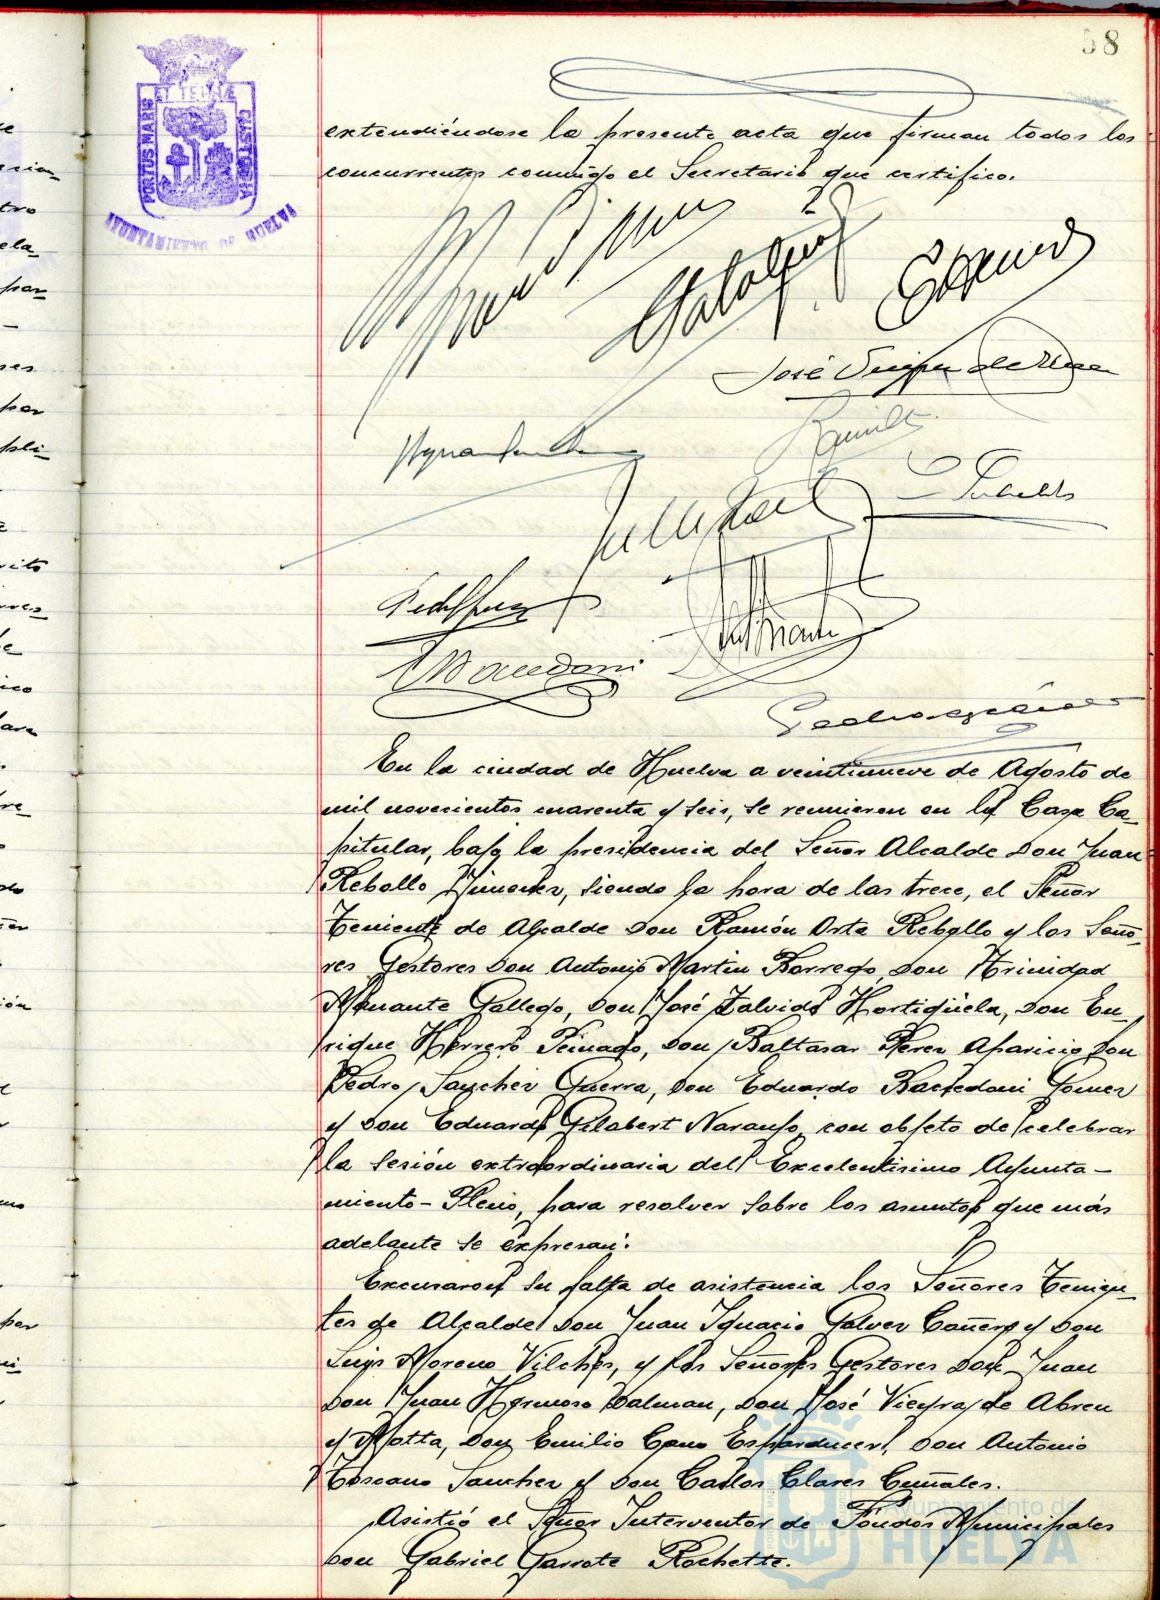 58
ET TERRÆ
PORTUS MARIS
CUSTODIA
AYUNTAMIENTO DE HUELVA
extendiéndose la presente acta que firman todos los
concurrentes conmigo el Secretario que certifico.
José
Pedro
En la ciudad de Huelva a veintinueve de Agosto de
mil novecientos cuarenta y seis, se reunieron en la Casa Ca-
pitular, bajo la presidencia del Señor Alcalde Don Juan
Rebollo Jimenez, siendo la hora de las trece, el Señor
Teniente de Alcalde Don Ramón Orta Rebollo y los Seño-
res Gestores Don Antonio Martin Borrego, Don Trinidad
Navante Gallego, Don José Zalvide Hortigüela, Don En-
rique Herrero Peinado, Don Baltasar Perez Aparicio Don
Pedro Sanchez Guerra, Don Eduardo Gomez
y Don Eduardo Gilabert Naranjo, con objeto de celebrar
la sesión extraordinaria del Excelentisimo Ayunta-
miento-Pleno, para resolver sobre los asuntos que más
adelante se expresan:
Excusaron su falta de asistencia los Señores Tenien-
tes de Alcalde Don Juan Ignacio Galvez Cañero y Don
Luis Moreno Vilches, y los Señores Gestores Don Juan
Don Juan Hermoso Dalman, Don José Vieyra de Abreu
y Motta, Don Emilio Cano Don Antonio
Toscano Sanchez y Don Carlos Clares
Asistió el Señor Interventor de Fondos Municipales
Don Gabriel Garrote Rochette.
Ayuntamiento de
HUELVA